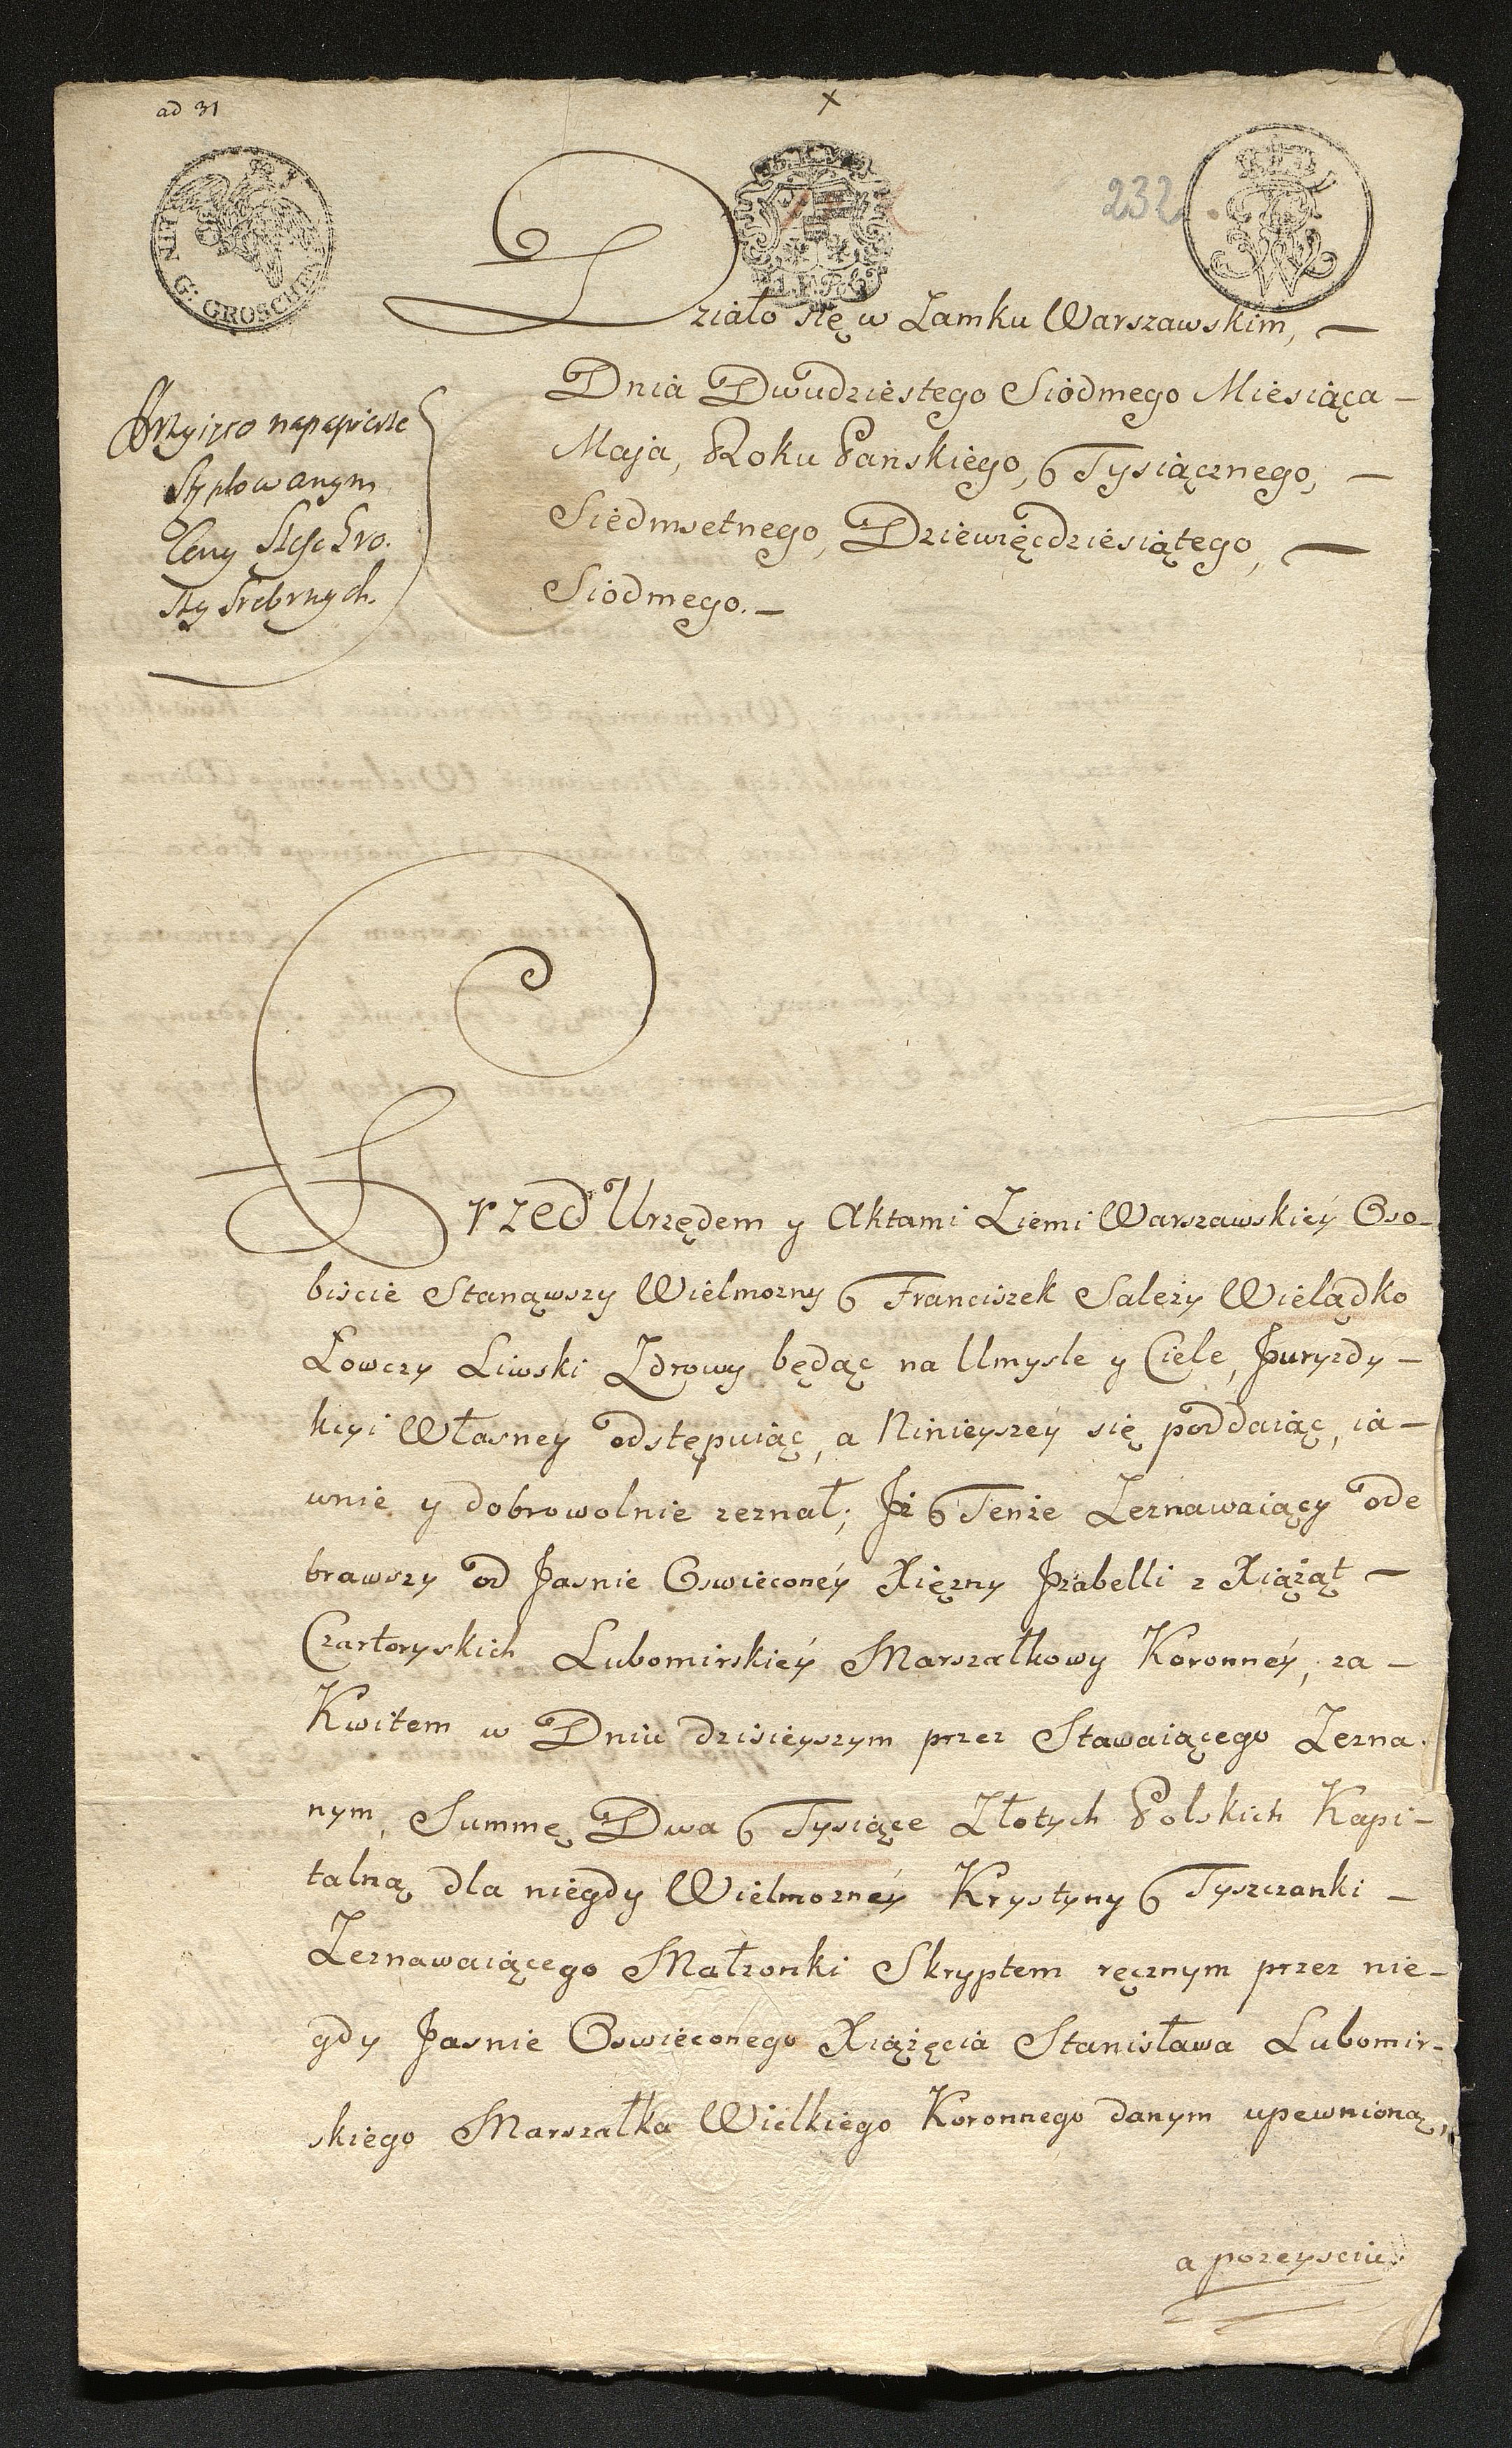 ad 31
x
232.
IIII G: GROSCHEN
Działo się w Zamku Warszawskim, —
Dnia Dwudziestego Siodmego Miesiąca —
Maja, Roku Pańskiego, Tysiącznego, —
Siedmsetnego, Dziewięcdziesiątego, —
Siodmego. —
Przyięto na papierze
Stęplowanym
Ceny Szesc Gro.
szy Srebrnych.
Przed Urzędem y Aktami Ziemi Warszawskiey Oso-
biscie Stanąwszy Wielmozny Franciszek Salezy Wielądko
Łowczy Liwski Zdrowy będąc na Umysle y Ciele, Juryzdy-
kcyi Własney odstępuiąc, a Ninieyszey się poddaiąc, ia-
wnie y dobrowolnie zeznał; Iż Tenże Zeznawaiący ode
brawszy od Jasnie Oswieconey Xięzny Izabelli z Xiążąt —
Czartoryskich Lubomirskiey Marszałkowy Koronney, za-
Kwitem w Dniu dzisieyszym przez Stawaiącego Zezna.
nym, Summę Dwa Tysiące Złotych Polskich Kapi-
talną dla niegdy Wielmozney Krystyny Tyszczanki —
Zeznawaiącego Małzonki Skryptem ręcznym przez nie-
gdy Jasnie Oswieconego Xiążęcia Stanisława Lubomir-
skiego Marszałka Wielkiego Koronnego danym upewnioną,
a pozeysciu